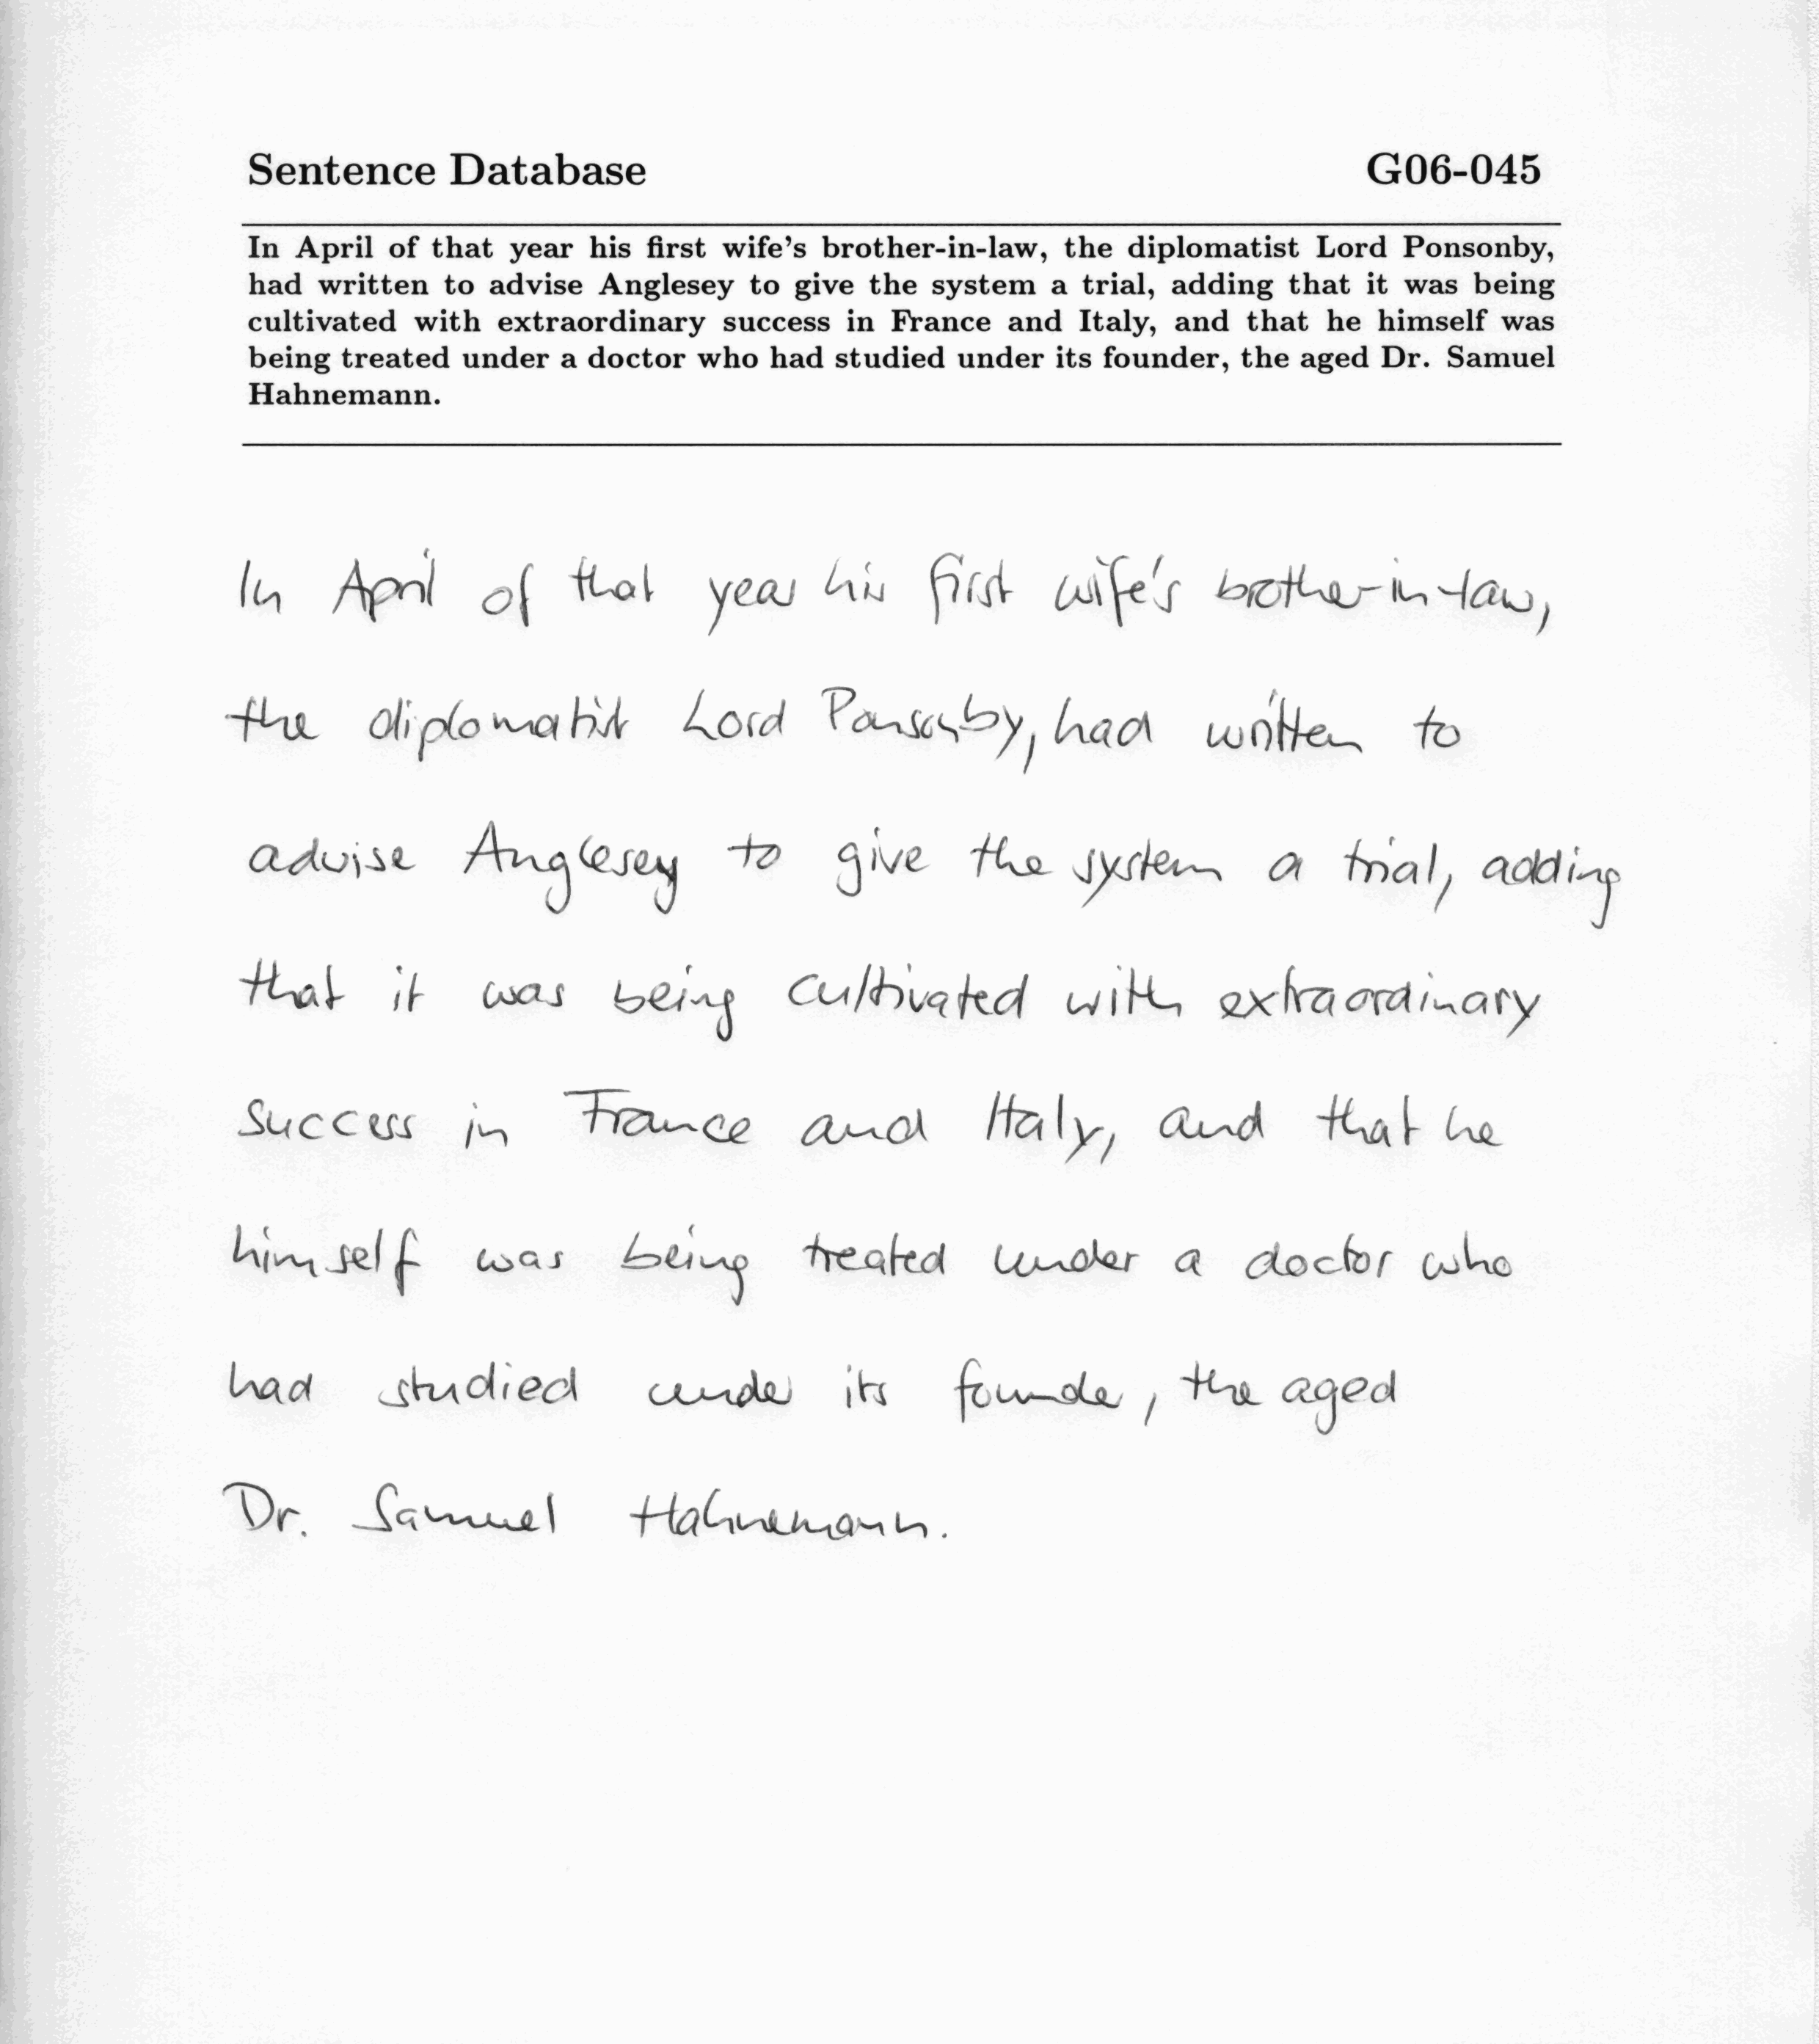 Sentence Database G06-045
In April of that year his first wife's brother-in-law, the diplomatist Lord Ponsonby,
had written to advise Anglesey to give the system a trial, adding that it was being
cultivated with extraordinary success in France and Italy, and that he himself was
being treated under a doctor who had studied under its founder, the aged Dr. Samuel
Hahnemann.
In April of that year his first wife's brother-in-law,
the diplomatist Lord Ponsonby, had written to
advise Anglesey to give the system a trial, adding
that it was being cultivated with extraordinary
success in France and Italy, and that he
himself was being treated under a doctor who
had studied under its founder, the aged
Dr. Samuel Hahnemann.